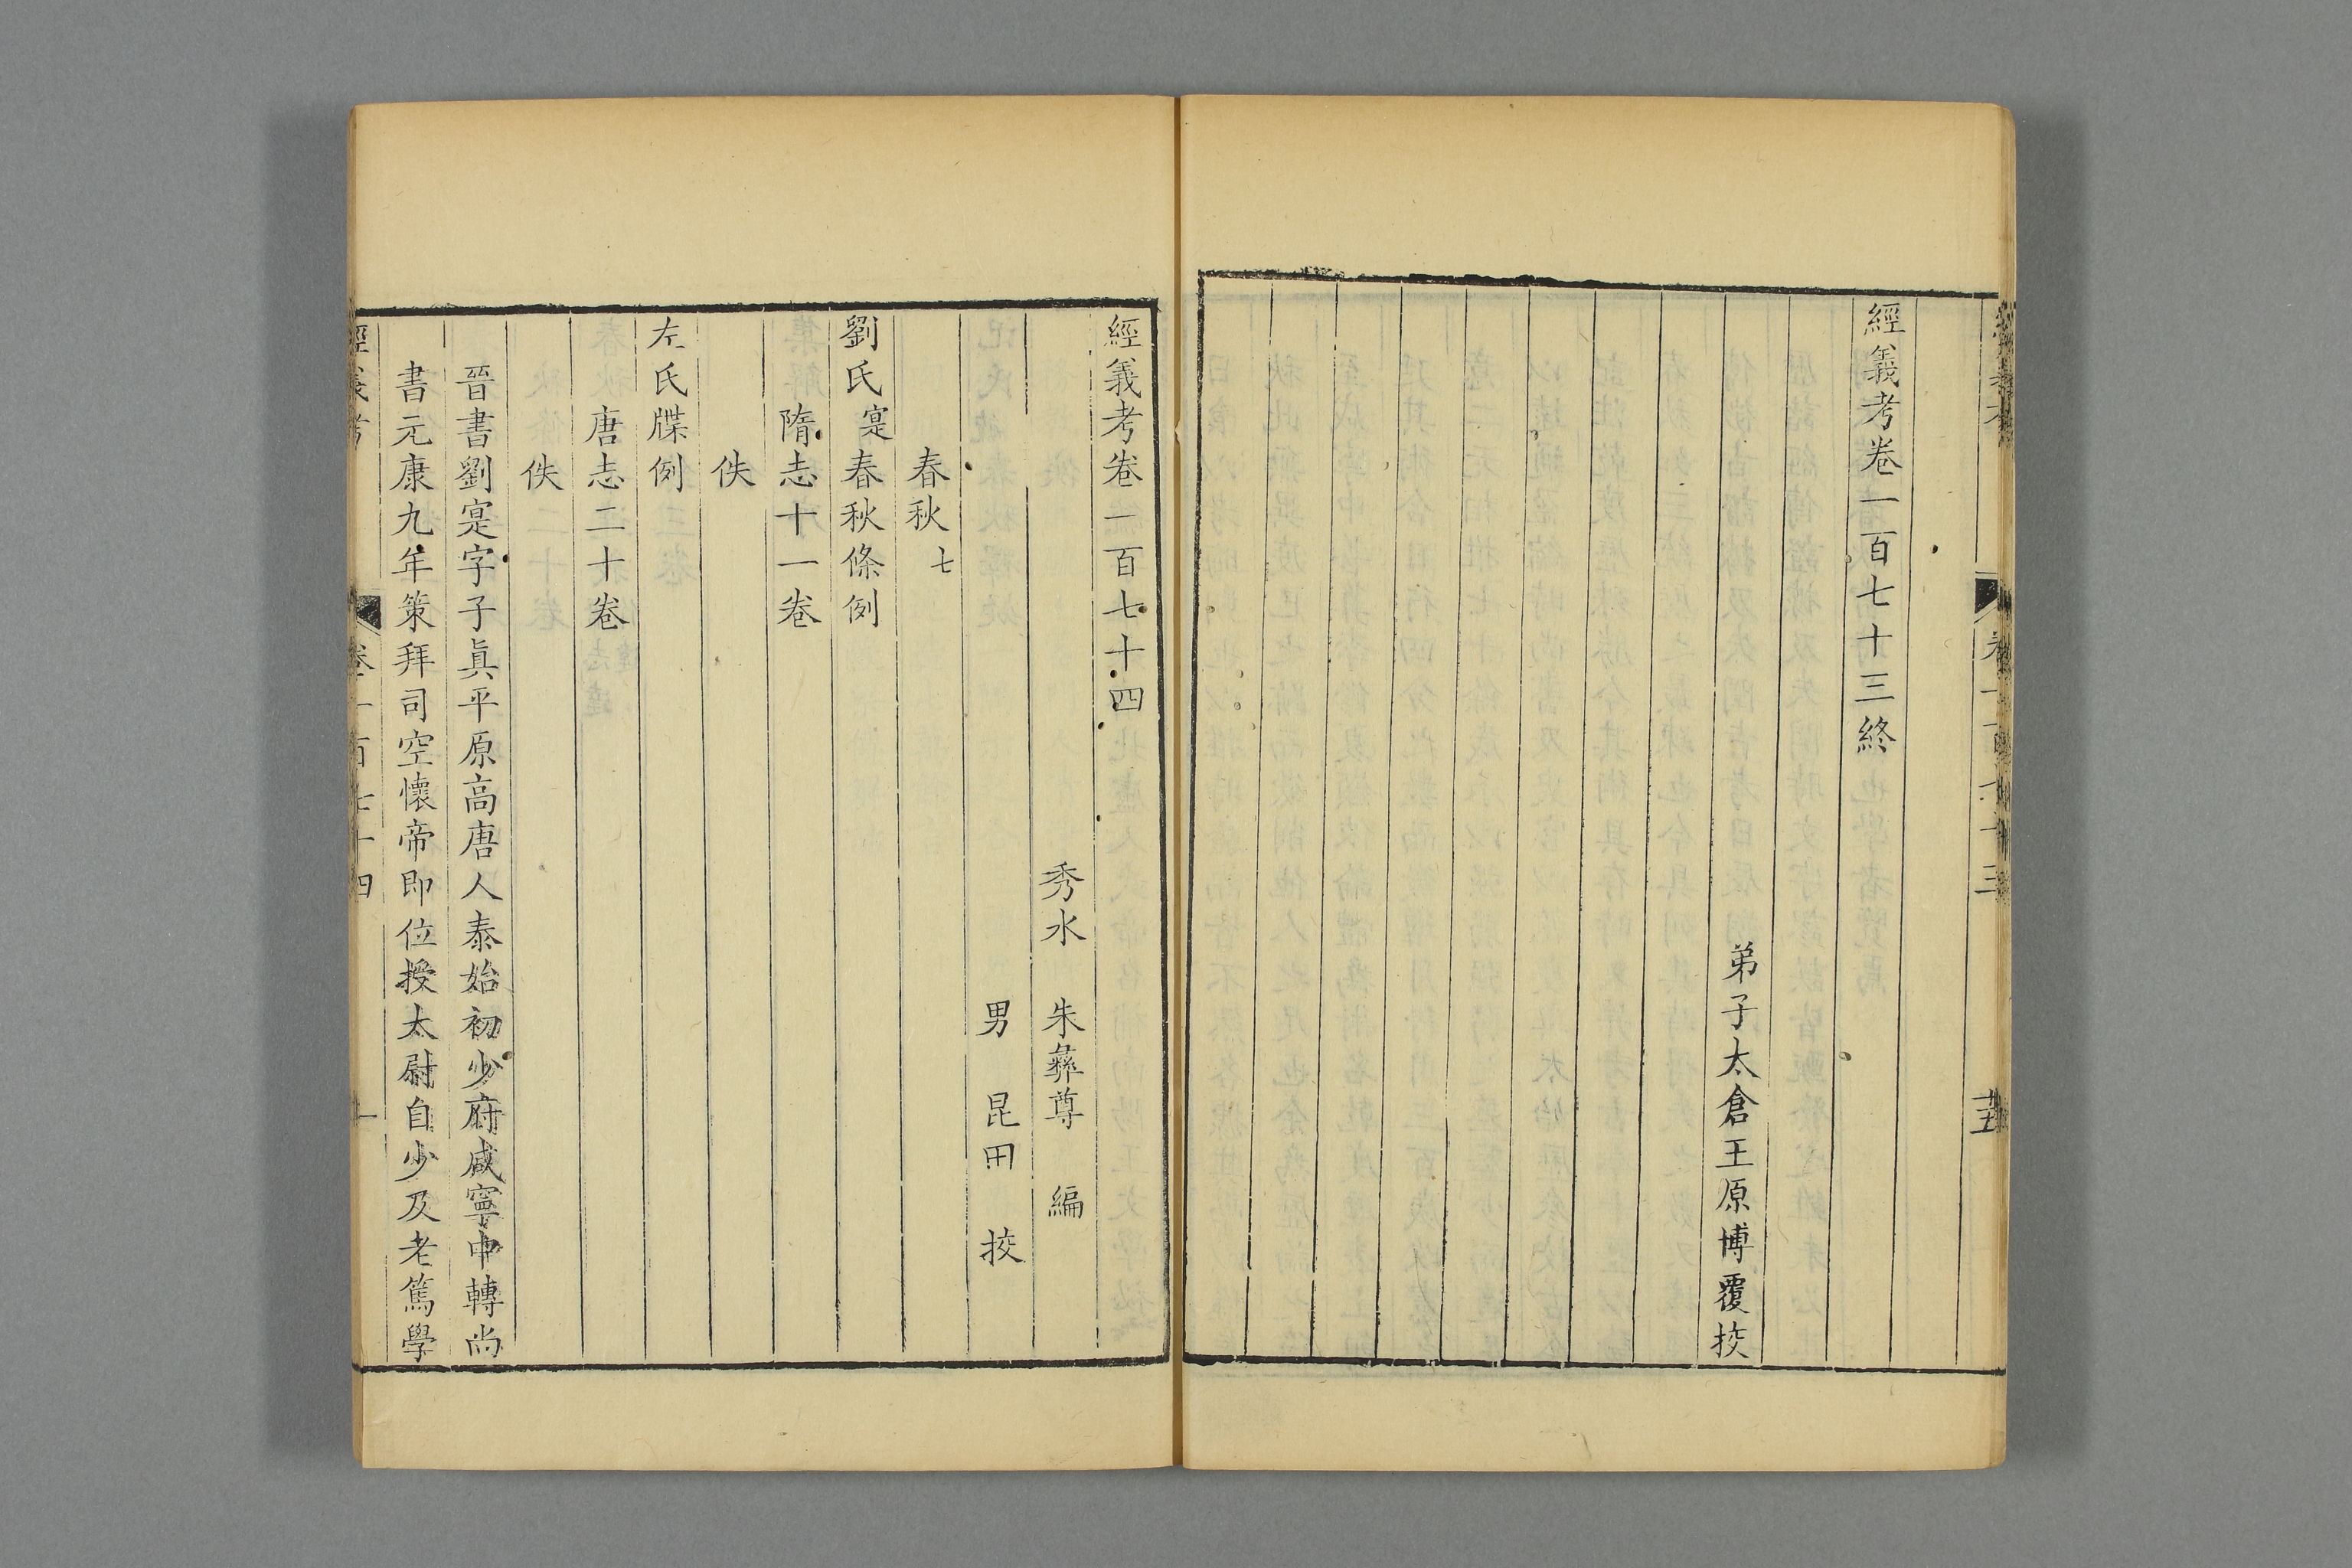 經義考卷一百七十三終
弟子太倉王原博覆挍
經義考卷一百七十四
秀水 朱彝尊 編
男 昆田 挍
春秋七
劉氏寔春秋條例
隋志十一卷
佚
左氏牒例
唐志二十卷
佚
晉書劉寔字子眞平原高唐人泰始初少府咸寧中轉尚
書元康九年策拜司空懷帝即位授太尉自少及老篤學
經義考 卷一百七十四 一